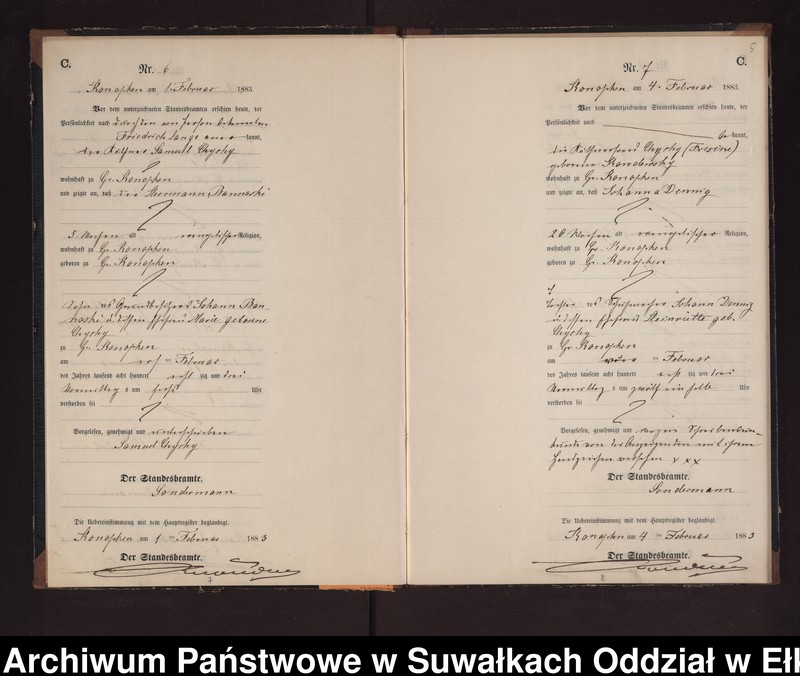 C.
Nr. 6
Konopken am 1. Februar 1883.
Vor dem unterzeichneten Standesbeamten erschien heute, der
Persönlichkeit nach durch den von Person bekannten
Friedrich Lange kannt,
der Käthner Samuel Chychy
wohnhaft zu Gr. Konopken
und zeigte an, daß der Hermann Bannaski
5 Wochen alt evangelischer Religion,
wohnhaft zu Gr. Konopken
geboren zu Gr. Konopken
Sohn des Grundbesitzers Johann Ban-
naski u. dessen Ehefrau Marie geborene
Chychy
zu Gr. Konopken
am ersten Februar
des Jahres tausend acht hundert acht zig und drei
Vormittag s um sechs Uhr
verstorben sei
Vorgelesen, genehmigt und unterschrieben
Samuel Chychy
Der Standesbeamte.
Sondermann
Die Uebereinstimmung mit dem Hauptregister beglaubigt.
Konopken am 1 ten Februar 1883
Der Standesbeamte.
Sondermann
7
5
C.
Nr. 7
Konopken am 4. Februar 1883.
Vor dem unterzeichneten Standesbeamten erschien heute, der
Persönlichkeit nach
be kannt,
die Käthnerfrau Chychy
geborene
wohnhaft zu Gr. Konopken
und zeigte an, daß Johanna Dennig
Wochen alt evangelischer Religion,
wohnhaft zu Gr. Konopken
geboren zu Gr. Konopken
Tochter des Johann Dennig
u. dessen Ehefrau Heinriette geb.
Chychy
zu Gr. Konopken
am Februar
des Jahres tausend acht hundert acht zig und drei
Vormittag s um zwölf ein halb Uhr
verstorben sei
Vorgelesen, genehmigt und wegen Schreibensun-
kunde von der Anzeigenden mit ihrem
Handzeichen versehen x x x
Der Standesbeamte.
Sondermann
Die Uebereinstimmung mit dem Hauptregister beglaubigt.
Konopken am 4 ten Februar 1883
Der Standesbeamte.
Sondermann
8
Archiwum Państwowe w Suwałkach Oddział w Ełk